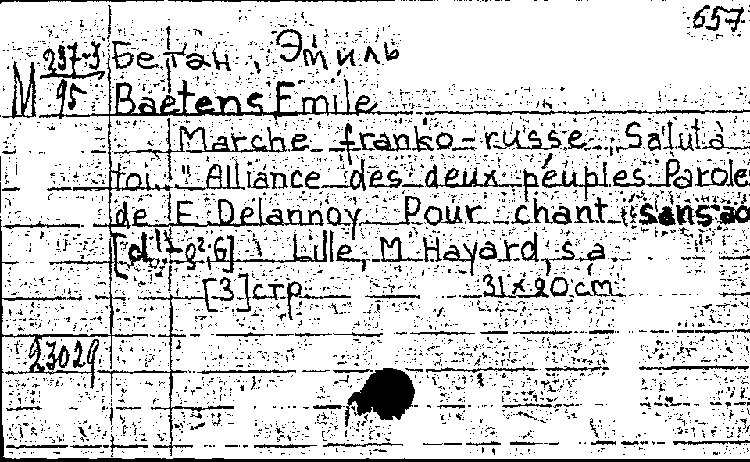 657
М 237-3/95
Бетан, Эмиль
Baetens Emile
Marche franko-russe, Salut à
toi..." Alliance des deux péuples. Parole
de E Delannoy Pour chant sans ac
Lille, M Hayard, s.a.
[3] стр. 31x20 cm
23029